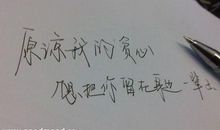 原谅我的负心
想把你留在身边一辈子